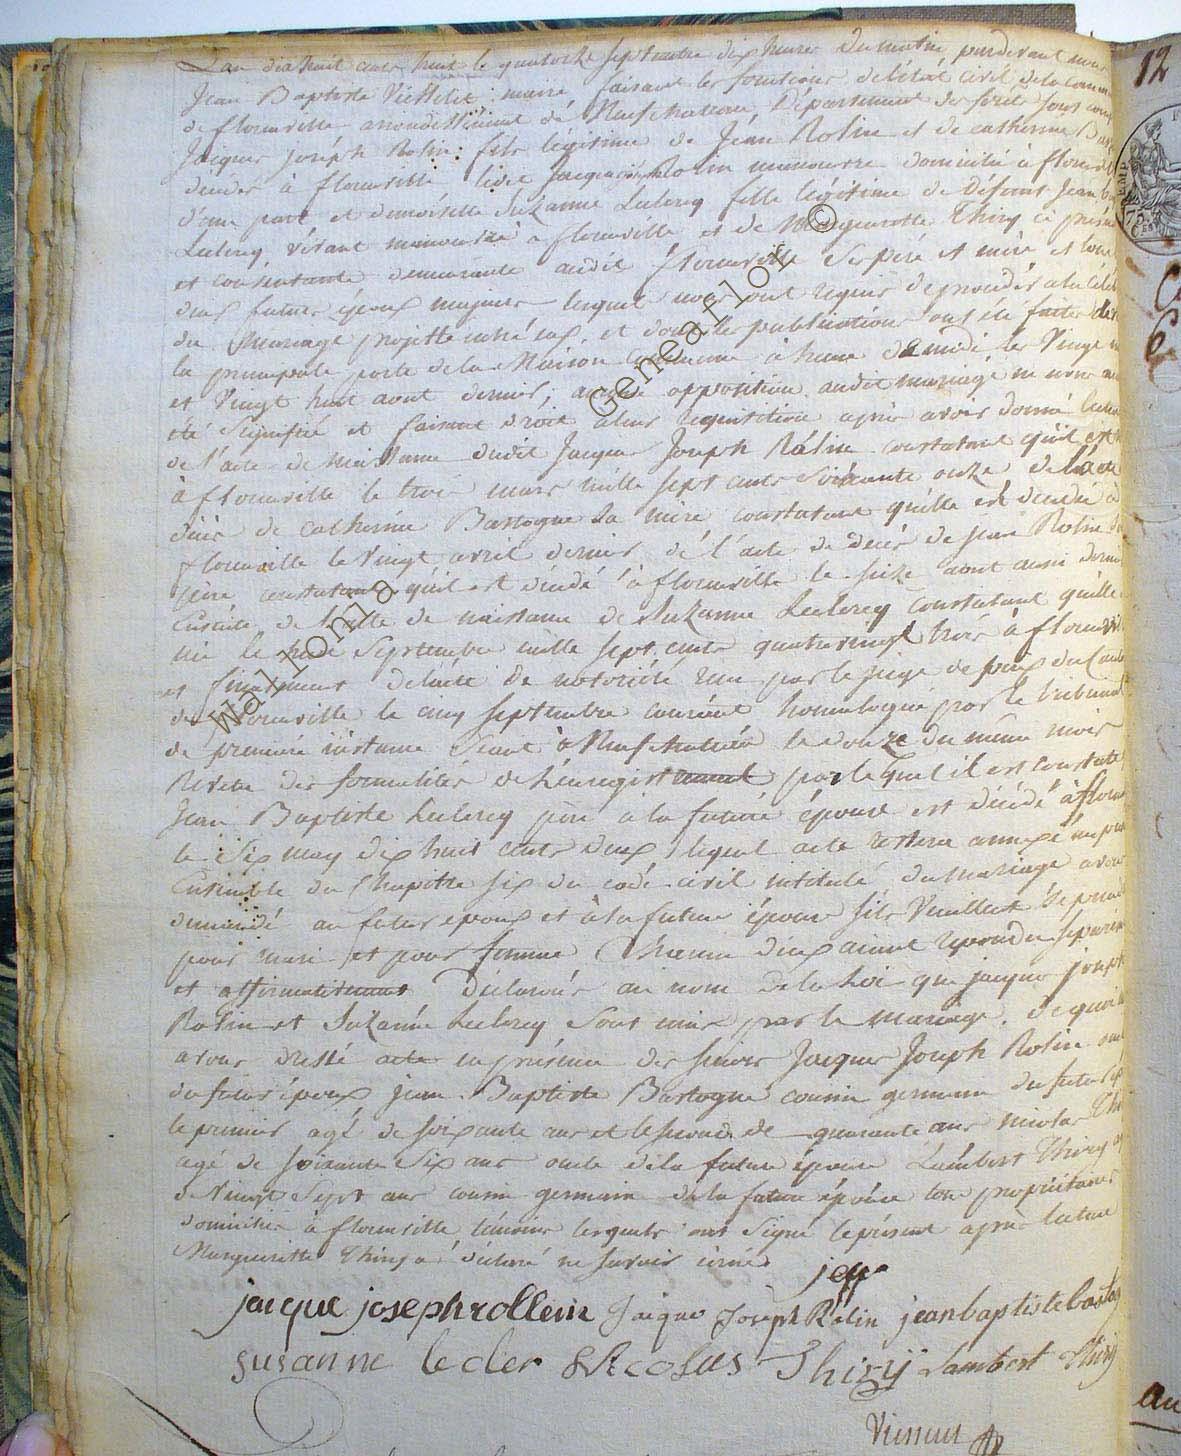 L'an dix huit cents huit le quatorze septembre dix heures du matin pardevant nous
Jean Baptiste maire faisant les fonctions de l'état civil de la commu
de florenville arrondissement de Neufchateau Département des forêts sont comp
Jacques joseph Rolin fils légitime de Jean Rolin et de catherine Bas
décédés à florenville ledit Jacques joseph Rolin manoeuvre domicilié à florenvil
d'une part et demoiselle Suzanne Leclercq fille légitime de Défunt Jean ba
Leclercq vivant manoeuvre à florenville et de Marguerotte Thiry ci presen
et consentante demeurante audit florenville ses père et mère et tous
deux futurs époux majeurs lesquels nous ont requis de procéder a la célé
du mariage projetté entré eux, et dont les publications ont été faites dev
la principale porte de la Maison Commune à heure de midi les Vingt
et Vingt huit aout dernier, aucune opposition audit mariage ne nous a
été signifiée et faisant droit a leur requisition après avoir donné lectu
de l'acte de naissance dudit Jacques Joseph Rolin constatant qu'il est n
à florenville le trois mars mille sept cents soixante onze de l'acte
décès de Catherine Bastogne sa mère constatant qu'elle est décédée à
florenville le Vingt avril dernier de l'acte de décès de Jean Rolin
père constatant qu'il est décédé à florenville le seize aout aussi dernier
Ensuite de l'acte de naissance de Suzanne Leclercq constatant qu'elle
née le Septembre mille sept cents quatrevingt trois à florenvil
et finalement de l'acte de notoriété par le juge de paix du Canton
de florenville le cinq septembre courant homologué par le tribunal
de première instance séant à Neufchateau le douze du même mois
Revetu des formalités de l'enregistrement par lequel il est constaté
Jean Baptiste Leclercq père a la future épouse est décédé à floren
le six may dix huit cents deux lequel acte restera annexé au pres
Ensemble du Chapitre six du code civil intitulé du mariage avons
demandé au futur époux et à la future épouse s'ils veuillent se prend
pour mari et pour femme chacun d'eux aiant repondu séparem
et affirmativement Déclarons au nom de la Loi que jacques joseph
Rolin et Suzanne Leclercq sont unis par le mariage, de quoi
avons dressé acte en présence des sieurs Jacques Joseph Rolin oncl
du futur époux jean Baptiste Bastogne cousin germain du futur ép
le premier agé de soixante ans et le second de quarante ans nicolas Thi
agé de soixante six ans oncle de la future épouse Lambert Thiry ag
de Vingt Sept ans cousin germain de la future épouse tous propriétaires
domiciliés à florenville témoins lesquels ont signé le présent après lecture
Margueritte Thiry a déclaré ne savoir écrire
jacque joseph rollein Jacque Joseph Rolin jean baptiste bastog
susanne lecler Nicolas Thiry Lambert Thiry
12
au
Wallonia Geneaflor ©